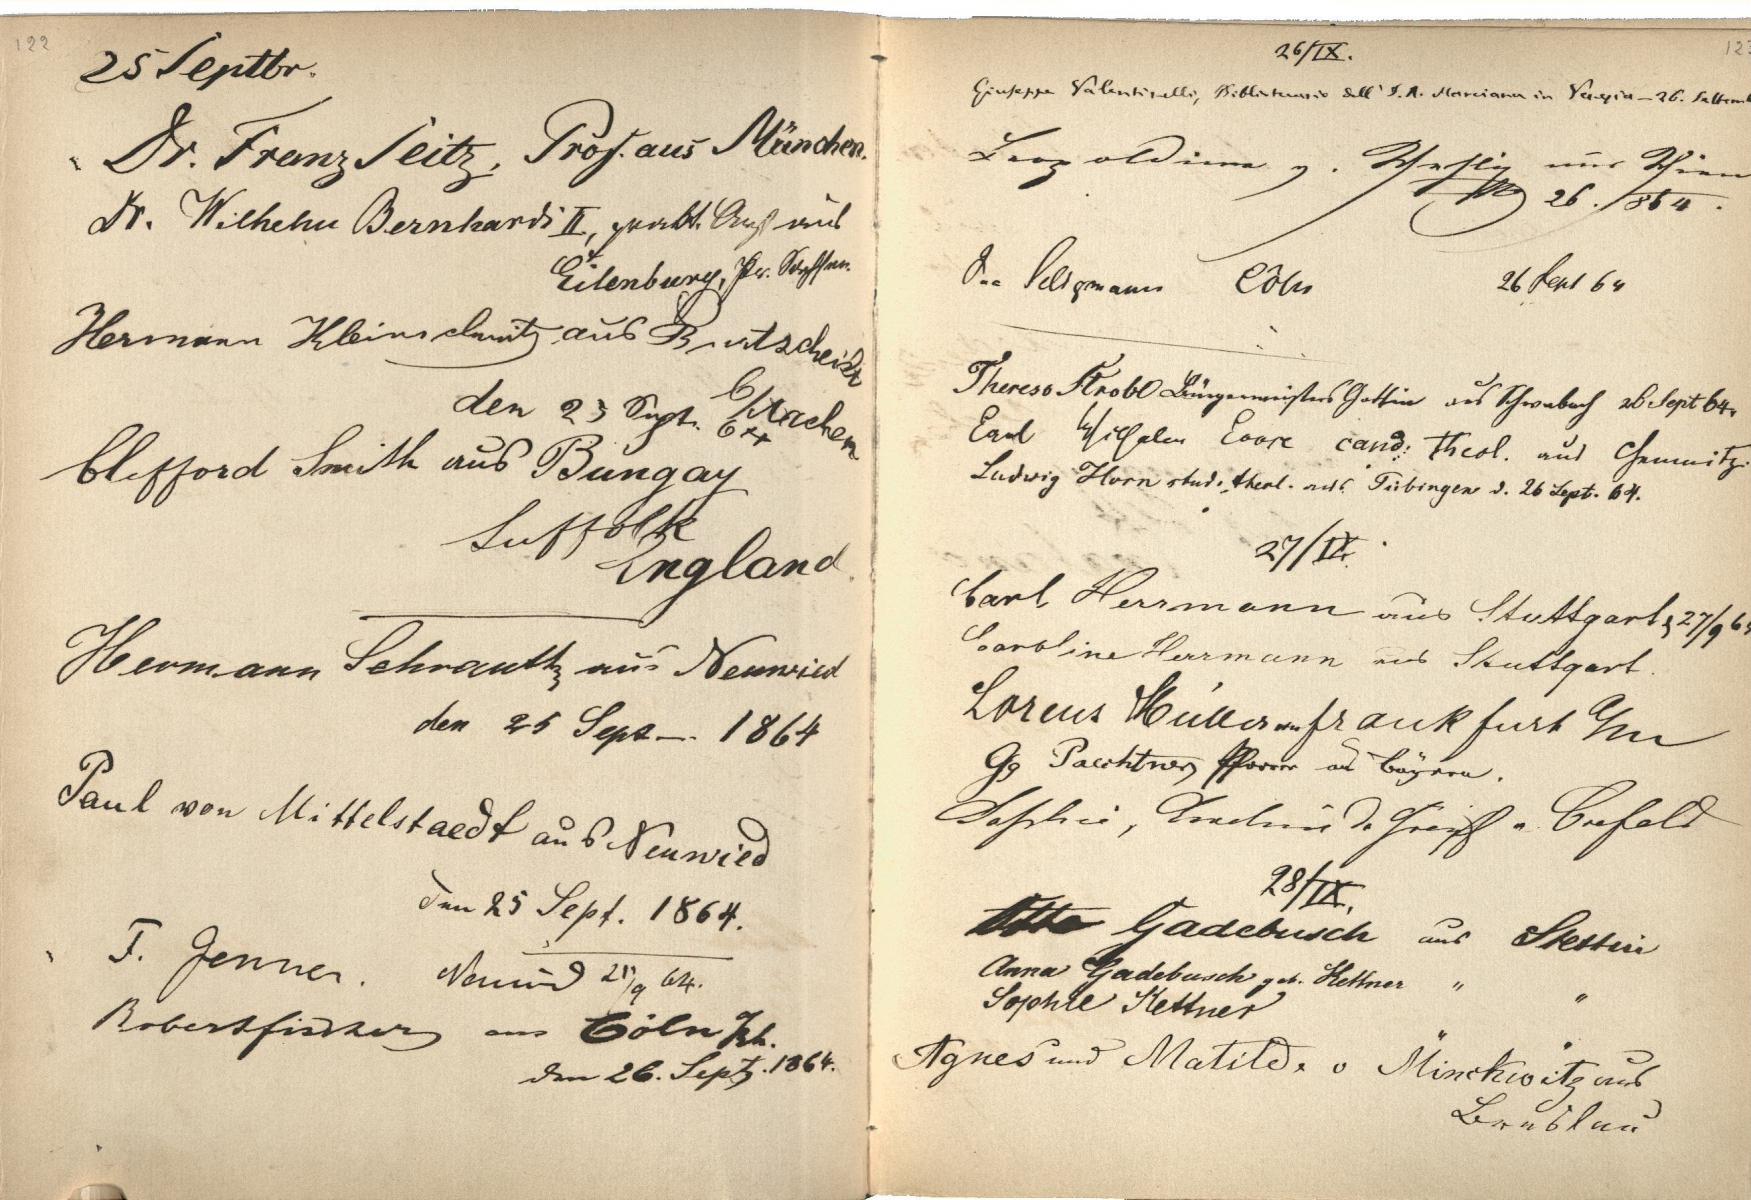 122
25 Septbr.
Dr. Franz Seitz, Prof. aus München.
Dr. Wilhelm Bernhardi II, prakt. Arzt aus
Eilenburg, Pr. Sachsen.
Hermann Kleinschmitz aus Burtscheid
b/Aachen
den 25 Sept. 64
Clifford Smith aus Bungay
Suffolk
England.
Hermann Schrautz aus Neuwied
den 25 Sept. 1864
Paul von Mittelstaedt aus Neuwied
den 25 Sept. 1864.
F. Jenner. Neuwied 25/9 64.
Robert Fischer aus Cöln Rh.
den 26. Sept. 1864.
26/IX.
Giuseppe Valentinelli, Bibliotecario dell' I. R. Marciana in Venezia – 26. Settemb
Leopoldine v. aus Wien
26. /864.
Seligmann Cöln 26 Sept 64
Therese Strobl Bürgermeisters Gattin aus Schwabach 26 Sept 64.
Carl Wilhelm cand: theol. aus Chemnitz.
Ludwig Horn stud. theol. aus Tübingen d. 26 Sept. 64.
27/IX.
Carl Herrmann aus Stuttgart 27/9 64
Caroline Herrmann aus Stuttgart.
Lorenz Müller aus Frankfurt a/m
Gg Paechtner, Pfarrer aus Bayern.
Sophie, a. Crefeld
28/IX.
Otto Gadebusch aus Stettin
Anna Gadebusch geb. Kettner "
Sophie Kettner "
Agnes und Matilde v Minckwitz aus
Breslau